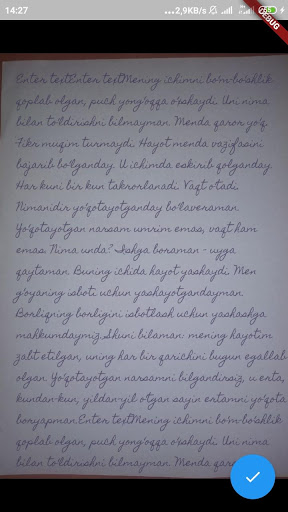 14:27
...2,9KB/s
55
DEBUG
Enter textEnter textMening ichimni bo'm-bo'shlik
qoplab olgan, puch yong'oqqa o'xshaydi. Uni nima
bilan to'ldirishni bilmayman. Menda qaror yo'q.
Fikr muqim turmaydi. Hayot menda vazifasini
bajarib bo'lganday. U ichimda eskirib qolganday.
Har kuni bir kun takrorlanadi. Vaqt o'tadi.
Nimanidir yo'qotayotganday bo'laveraman.
Yo'qotayotgan narsam umrim emas, vaqt ham
emas. Nima unda? Ishga boraman - uyga
qaytaman. Buning ichida hayot yashaydi. Men
g'oyaning isboti uchun yashayotgandayman.
Borliqning borligini isbotlash uchun yashashga
mahkumdaymiz.Shuni bilaman: mening hayotim
zabt etilgan, uning har bir qarichini bugun egallab
olgan. Yo'qotayotgan narsamni bilgandirsiz, u erta,
kundan-kun, yildan-yil o'tgan sayin ertamni yo'qota
boryapman.Enter textMening ichimni bo'm-bo'shlik
qoplab olgan, puch yong'oqqa o'xshaydi. Uni nima
bilan to'ldirishni bilmayman. Menda qaror